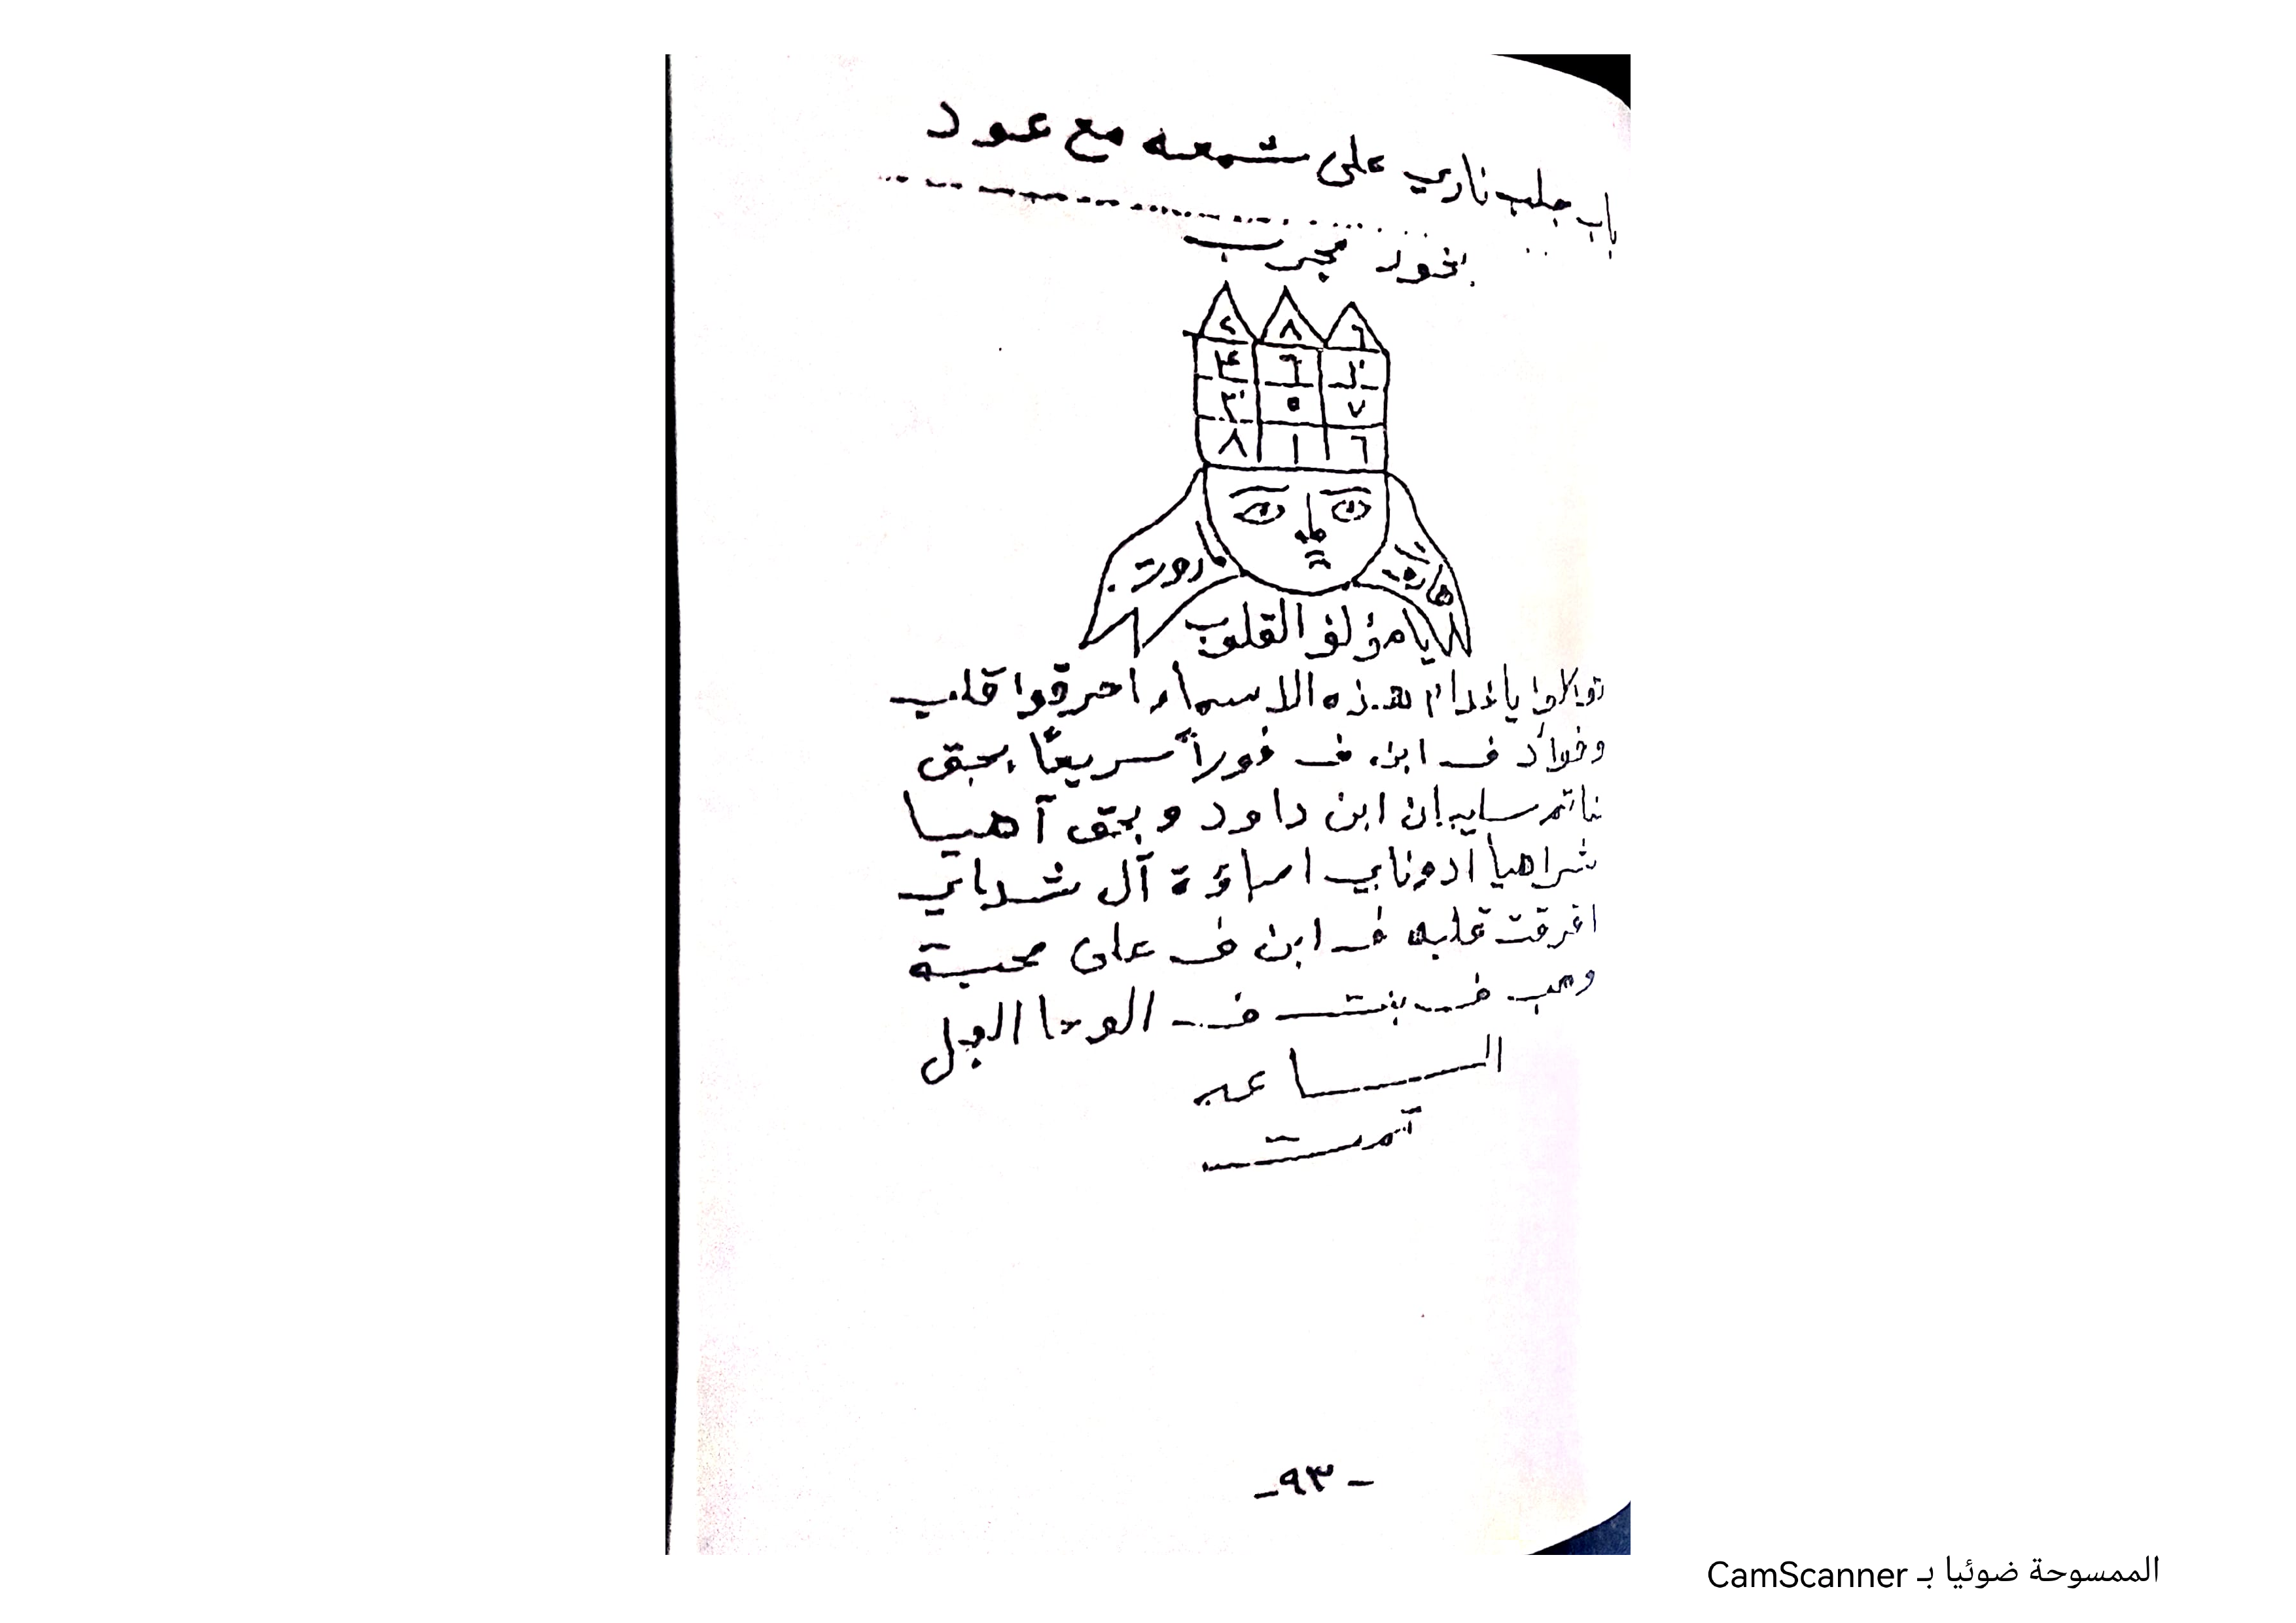 باب جلب ناري على شمعه مع عود
بخور مجرب
٢ ٨ ٦
٤ ٦ ٢
٣ ٥ ٧
٨ ١ ٦
ماروت هاروت
يا مؤلف القلوب
توكلوا يا خدام هذه الاسماء احرقوا قلب
وفؤاد ف ابن ف فوراً سريعًا بحق
خاتم سليمان ابن داود وبحق آهيا
شراهيا ادوناي اصباؤة آل شداي
افرقت قلبه ف ابن ف على محبة
وحب ف بنت ف الوحا العجل
الساعه
تمت
-٩٣-
الممسوحة ضوئيا بـ CamScanner